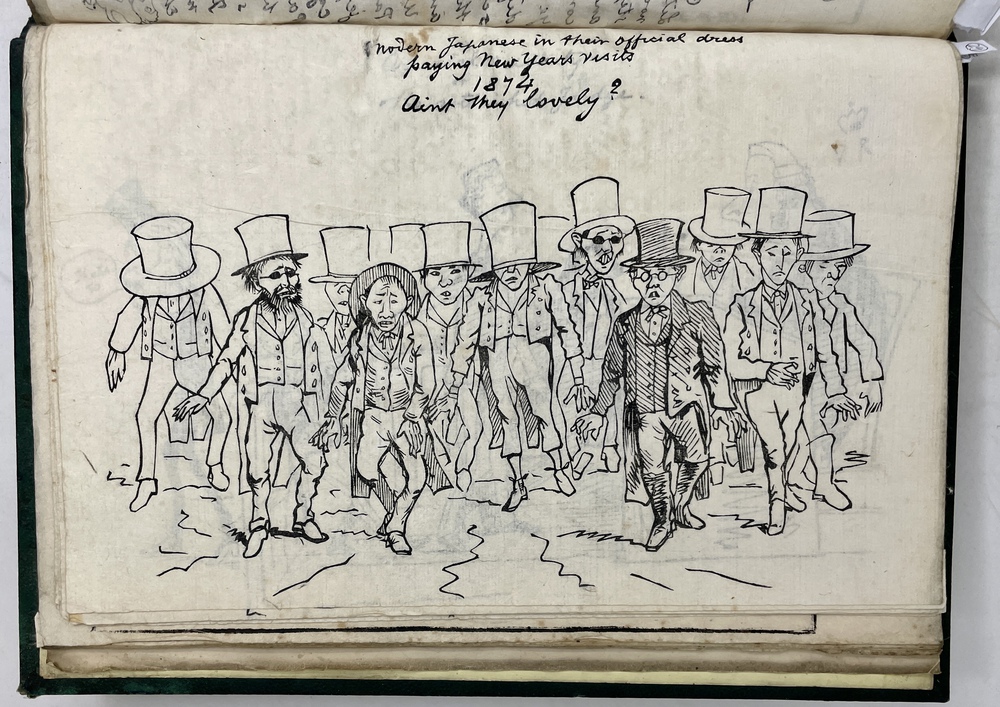 Modern Japanese in their official dress
paying New Years visits
1874
Aint they lovely?